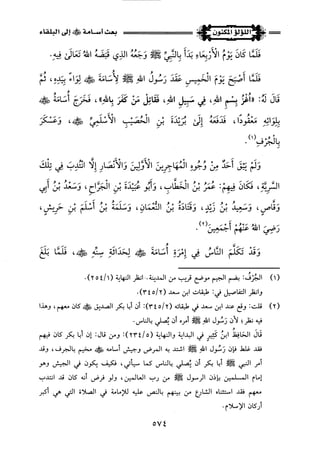 اللؤلؤ المكنون
بعث أسامة ﷺ إلى البلقاء
فَلَمَّا كَانَ يَوْمُ الْأَرْبِعَاءِ بَدَأَ بِالنَّبِيِّ ﷺ وَجَعُهُ الذِي قَبَضَهُ اللهُ تَعَالَى فِيهِ.
فَلَمَّا أَصْبَحَ يَوْمُ الْخَمِيسِ عَقَدَ رَسُولُ اللهِ ﷺ لِأُسَامَةَ لِوَاءً بِيَدِهِ، ثُمَّ
قَالَ لَهُ: «اغْزُ بِسْمِ اللهِ، فِي سَبِيلِ اللهِ، فَقَاتِلْ مَنْ كَفَرَ بِاللهِ»، فَخَرَجَ أُسَامَةُ
بِلِوَائِهِ مَعْقُودًا، فَدَفَعَهُ إِلَى بُرَيْدَةَ بْنِ الْحُصَيْبِ الْأَسْلَمِيِّ، وَعَسْكَرَ
بِالْجُرُفِ(١).
وَلَمْ يَبْقَ أَحَدٌ مِنْ وُجُوهِ الْمُهَاجِرِينَ الْأَوَّلِينَ وَالْأَنْصَارِ إِلَّا انْتُدِبَ فِي تِلْكَ
السَّرِيَّةِ، فَكَانَ فِيهِمْ: عُمَرُ بْنُ الْخَطَّابِ، وَأَبُو عُبَيْدَةَ بْنُ الْجَرَّاحِ، وَسَعْدُ بْنُ أَبِي
وَقَّاصٍ، وَسَعِيدُ بْنُ زَيْدٍ، وَقَتَادَةُ بْنُ النُّعْمَانِ، وَسَلَمَةُ بْنُ أَسْلَمَ بْنِ حَرِيشٍ،
رَضِيَ اللهُ عَنْهُمْ أَجْمَعِينَ(٢).
وَقَدْ تَكَلَّمَ النَّاسُ فِي إِمْرَةِ أُسَامَةَ لِحَدَاثَةِ سِنِّهِ، فَلَمَّا بَلَغَ
(١) الجُرُف: بضم الجيم موضع قريب من المدينة. انظر النهاية (٢٥٤/١)
وانظر التفاصيل في: طبقات ابن سعد (٣٤٥/٢).
(٢) قلت: وقع عند ابن سعد في طبقاته (٣٤٥/٢): أن أبا بكر الصديق كان معهم، وهذا
فيه نظر؛ لأن رسول الله ﷺ أمره أن يُصلي بالناس.
قَالَ الحَافِظُ ابنُ كَثِيرٍ في البداية والنهاية (٢٣٤/٥): ومن قال: إن أبا بكر كان فيهم
فقد غلط فإن رَسُول الله ﷺ اشتد به المرض وجيش أسامة مخيم بالجرف، وقد
أمر النبي ﷺ أبا بكر أن يُصلي بالناس كما سيأتي، فكيف يكون في الجيش وهو
إمام المسلمين بإذن الرسول ﷺ من رب العالمين، ولو فرض أنه كان قد انتدب
معهم فقد استثناه الشارع من بينهم بالنص عليه للإمامة في الصلاة التي هي أكبر
أركان الإسلام.
٥٧٤